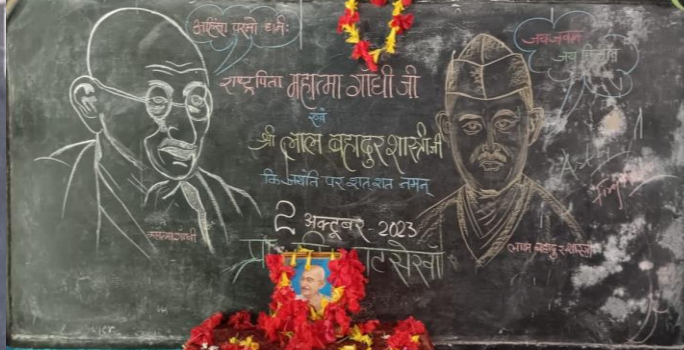 अहिंसा परमो धर्मः
जय जवान
जय किसान
राष्ट्रपिता महात्मा गाँधी जी
एवं
श्री लाल बहादुर शास्त्री जी
कि जयंति पर शत शत नमन्
महात्मा गांधी
2 अक्टूबर - 2023
लाल बहादुर शास्त्री